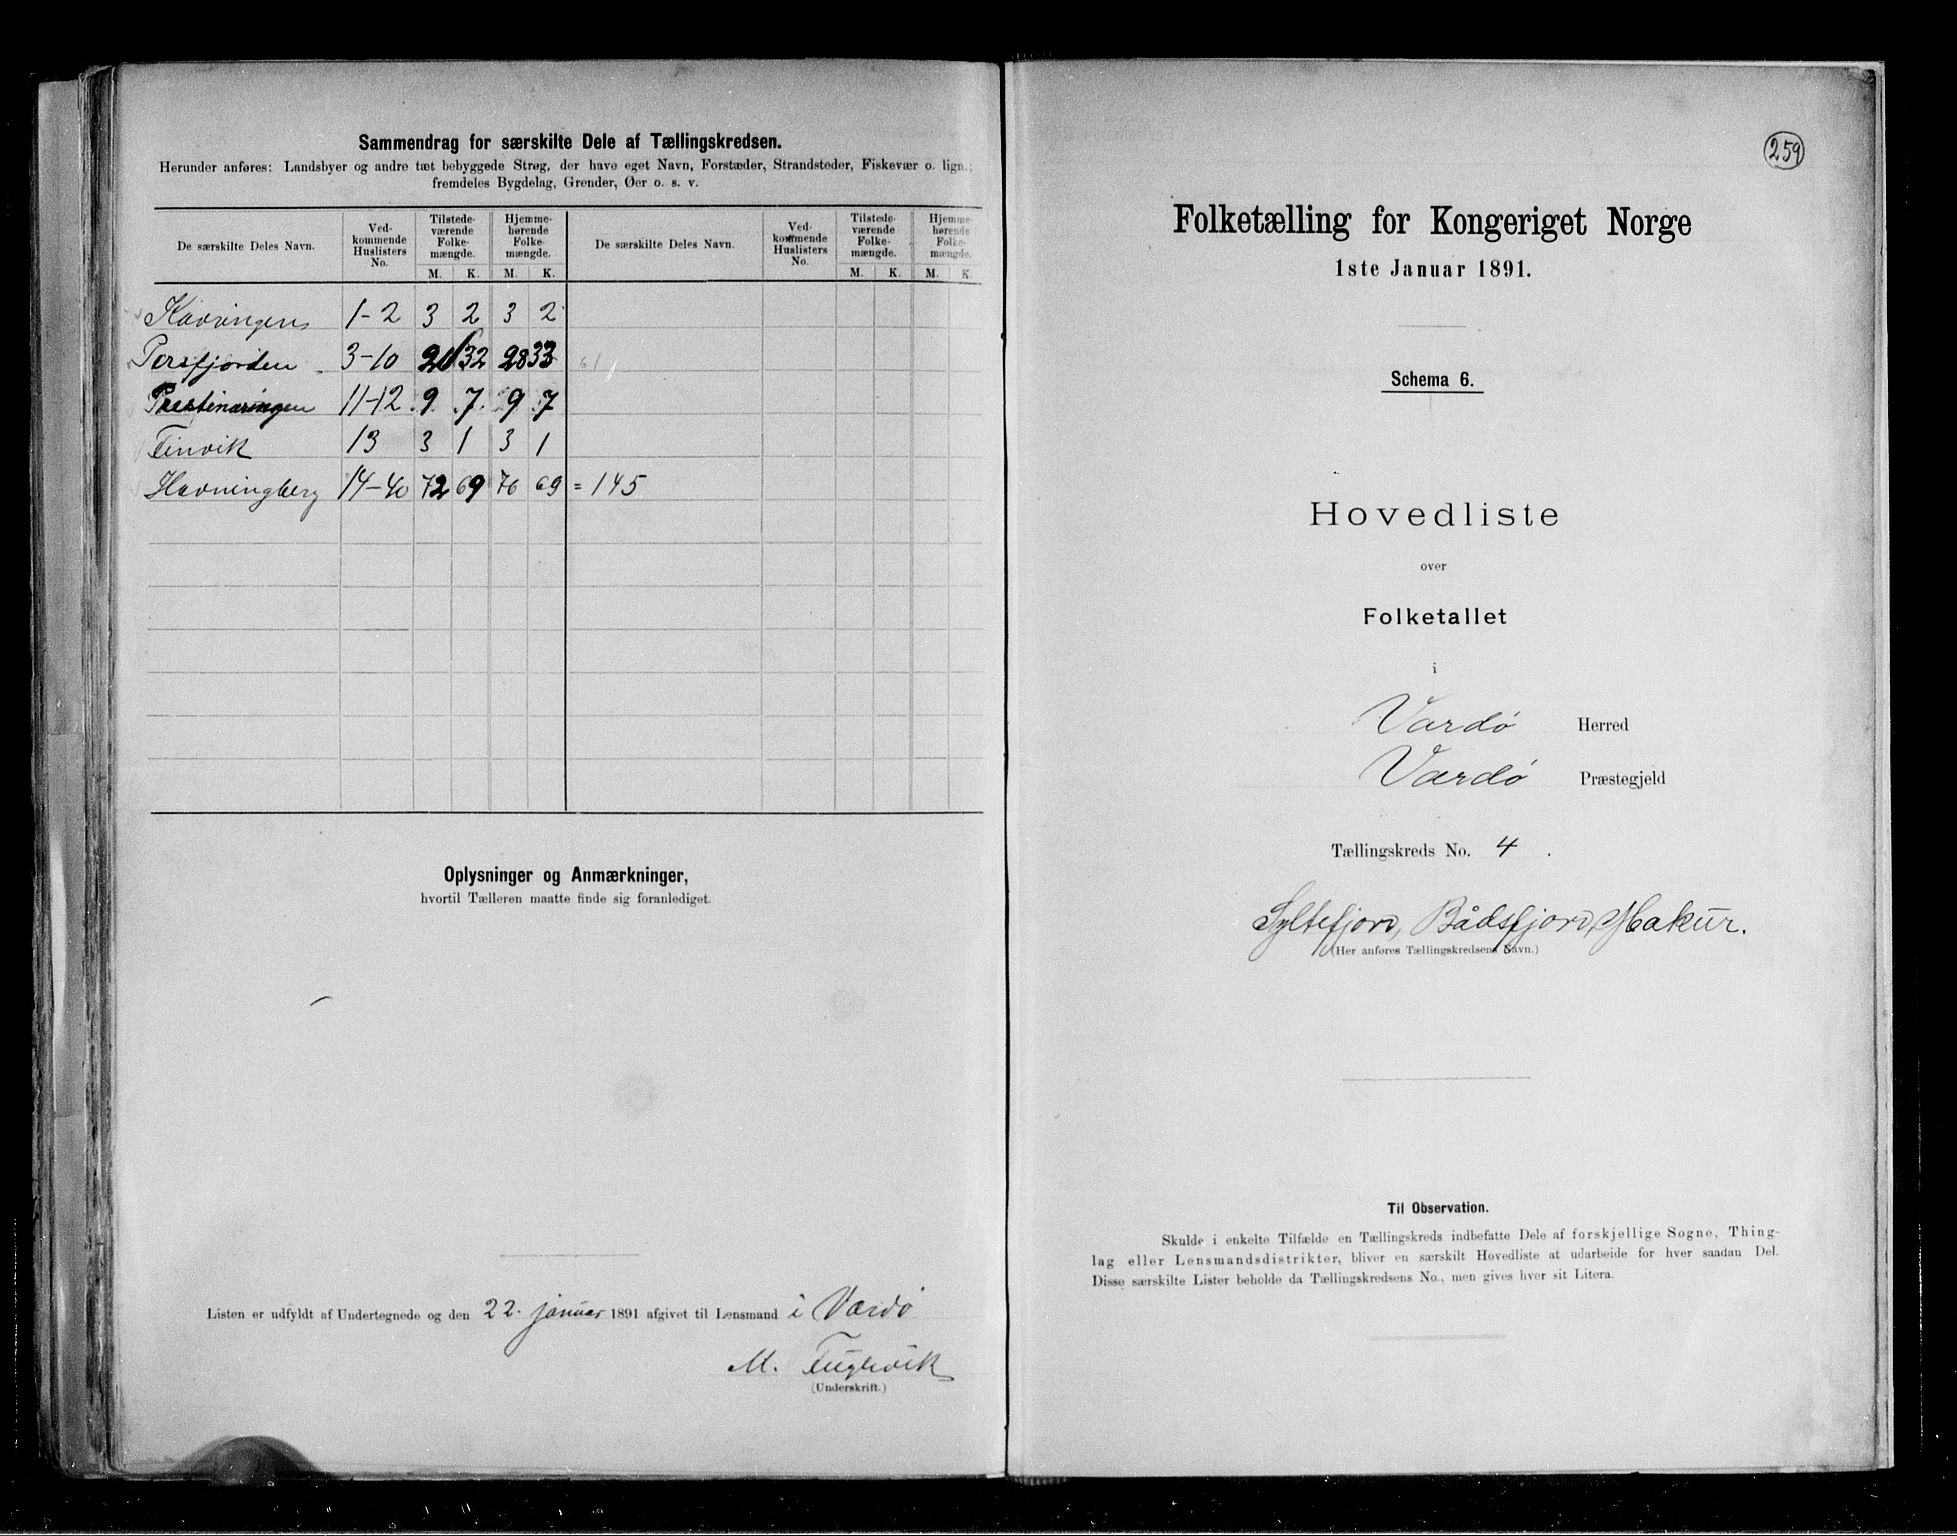 Sammendrag for særskilte Dele af Tællingskredsen.
Herunder anføres: Landsbyer og andre tæt bebyggede Strøg, der have eget Navn, Forstæder, Strandsteder, Fiskevær o. lign.;
fremdeles Bygdelag, Grender, Øer o. s. v.
De særskilte Deles Navn. Vedkommende Huslisters No. Tilstedeværende Folkemængde. Hjemmehørende Folkemængde. De særskilte Deles Navn. Vedkommende Huslisters No. Tilstedeværende Folkemængde. Hjemmehørende Folkemængde.
M. K. M. K. M. K. M. K.
1-2 3 2 3 2
Persfjorden 3-10 32 28 33 61
11-12 9 7 9 7
Finvik 13 3 1 3 1
Havningberg 14-40 72 69 76 69 = 145
Oplysninger og Anmærkninger,
hvortil Tælleren maatte finde sig foranlediget.
Listen er udfyldt af Undertegnede og den 22. januar 1891 afgivet til Lensmand i Vardø
M. Fuglevik
(Underskrift.)
259
Folketælling for Kongeriget Norge
1ste Januar 1891.
Schema 6.
Hovedliste
over
Folketallet
i
Vardø Herred
Vardø Præstegjeld
Tællingskreds No. 4.
Syltefjord, Bådsfjord, Makur.
(Her anføres Tællingskredsens Navn.)
Til Observation.
Skulde i enkelte Tilfælde en Tællingskreds indbefatte Dele af forskjellige Sogne, Thing-
lag eller Lensmandsdistrikter, bliver en særskilt Hovedliste at udarbeide for hver saadan Del.
Disse særskilte Lister beholde da Tællingskredsens No., men gives hver sit Litera.